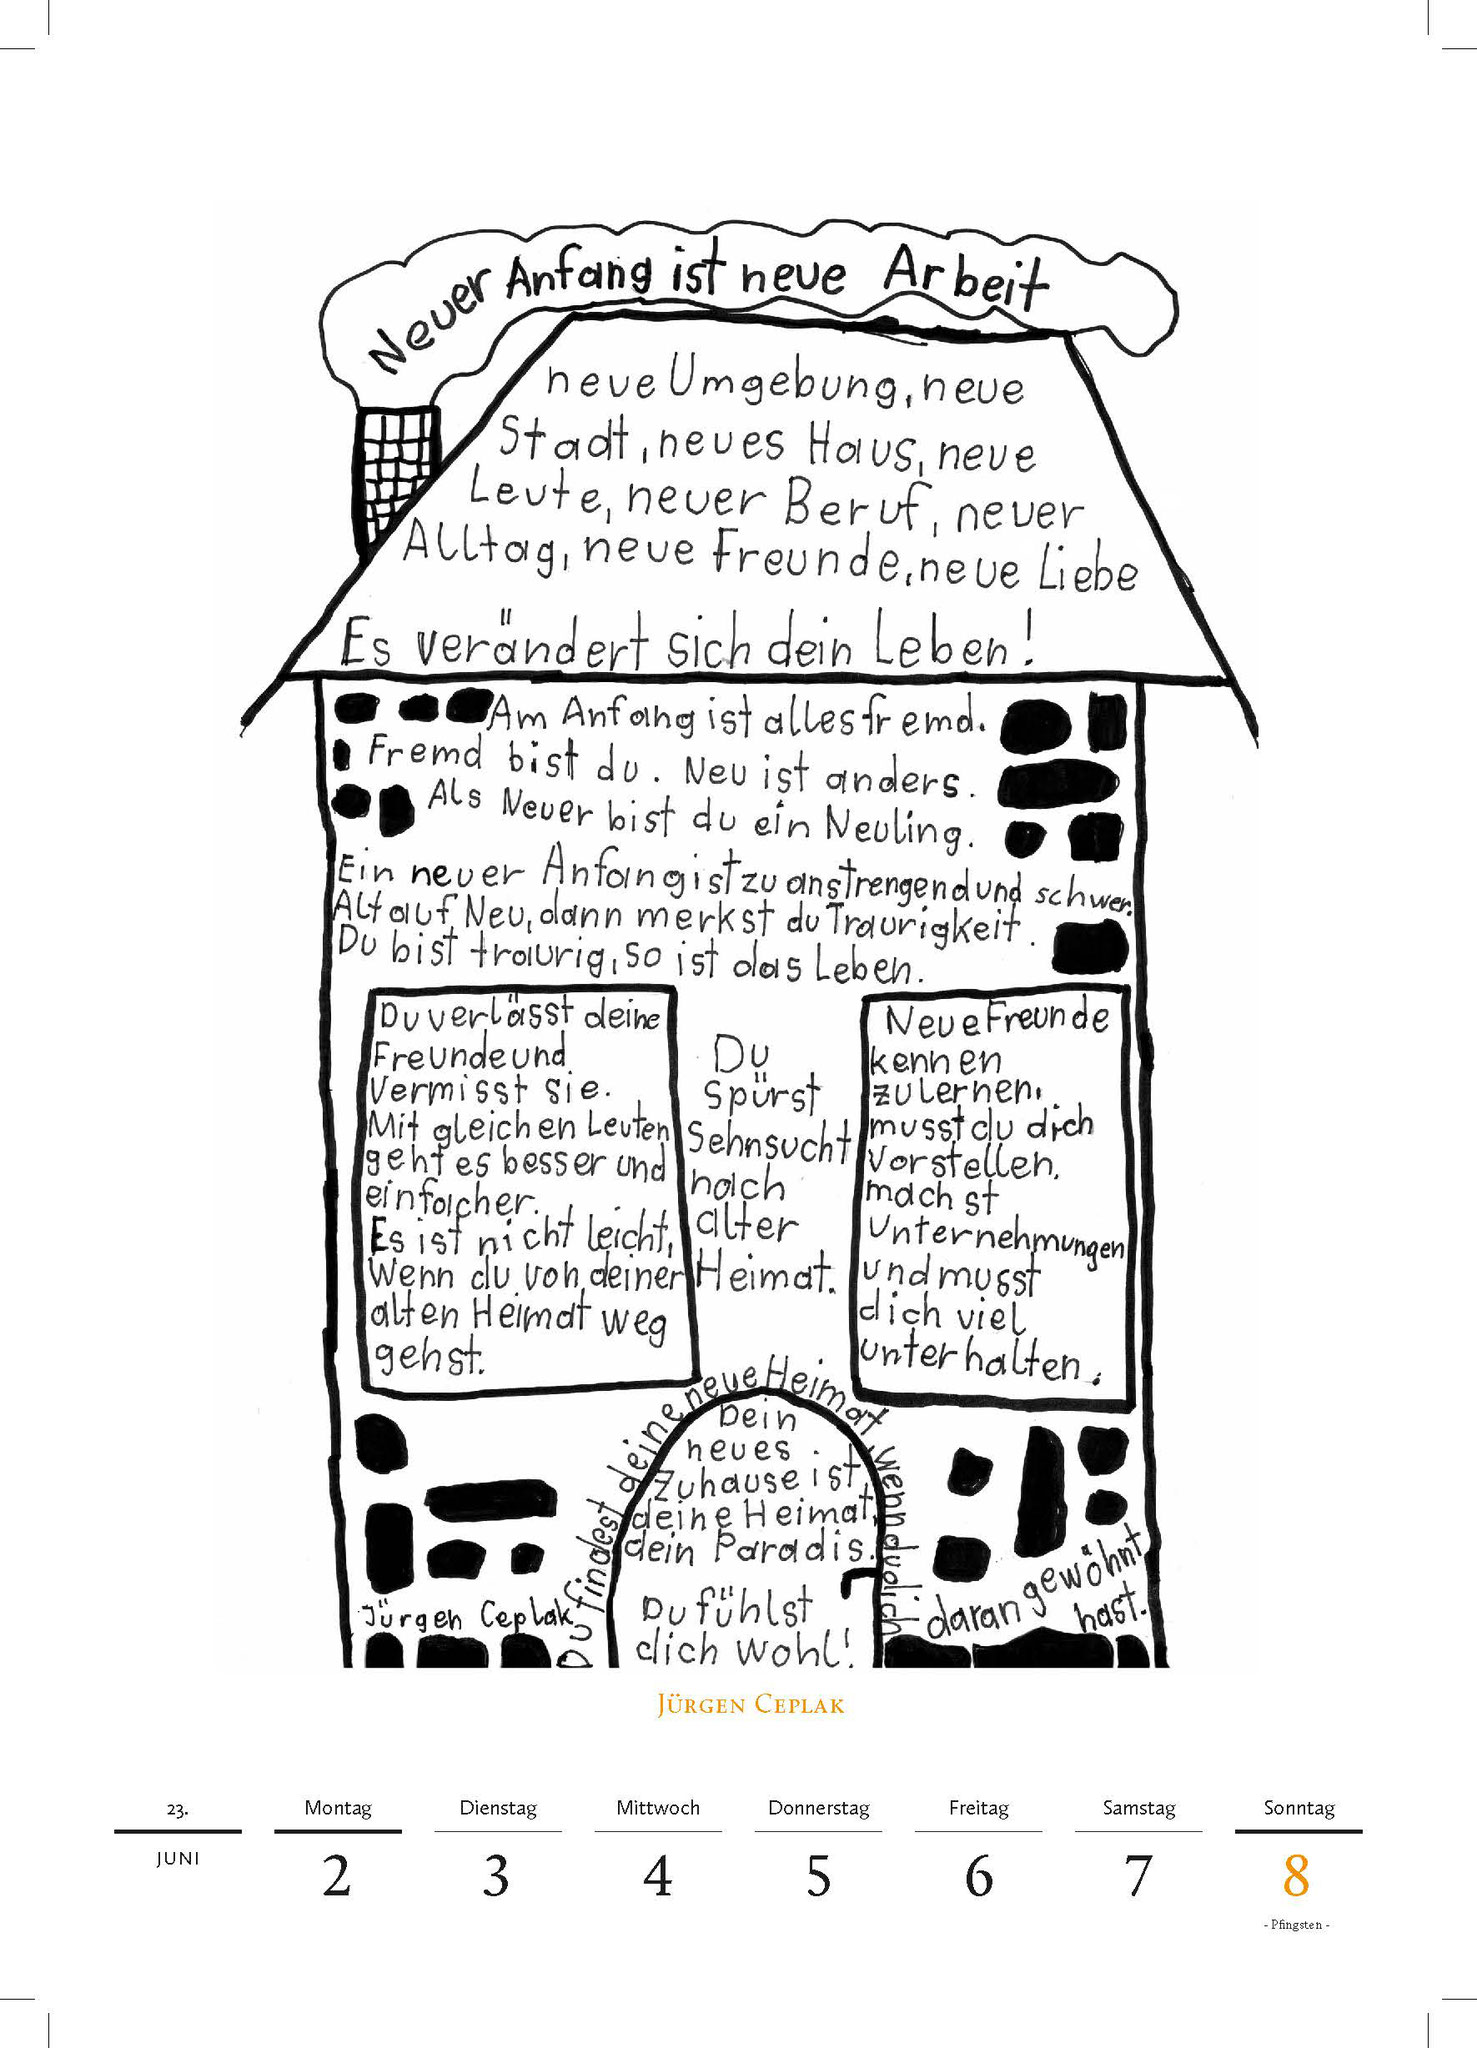 Neuer Anfang ist neue Arbeit
neue Umgebung, neue
Stadt, neues Haus, neue
Leute, neuer Beruf, neuer
Alltag, neue Freunde, neue Liebe
Es verändert sich dein Leben!
Am Anfang ist alles fremd.
Fremd bist du. Neu ist anders.
Als Neuer bist du ein Neuling.
Ein neuer Anfang ist zu anstrengend und schwer.
Alt auf Neu, dann merkst du Traurigkeit.
Du bist traurig, so ist das Leben.
Du verlässt deine
Freunde und
vermisst sie.
Mit gleichen Leuten
geht es besser und
einfacher.
Es ist nicht leicht,
Wenn du von deiner
alten Heimat weg
gehst.
Du
spürst
Sehnsucht
nach
alter
Heimat.
Neue Freunde
kennen
zu lernen,
musst du dich
vorstellen,
machst
unternehmungen
und musst
dich viel
unterhalten.
Du findest deine neue Heimat, wenn du dich
daran gewöhnt
hast.
Dein
neues
Zuhause ist
deine Heimat,
dein Paradis.
Du fühlst
dich wohl!
Jürgen Ceplak
Jürgen Ceplak
23. Montag Dienstag Mittwoch Donnerstag Freitag Samstag Sonntag
JUNI 2 3 4 5 6 7 8
- Pfingsten -